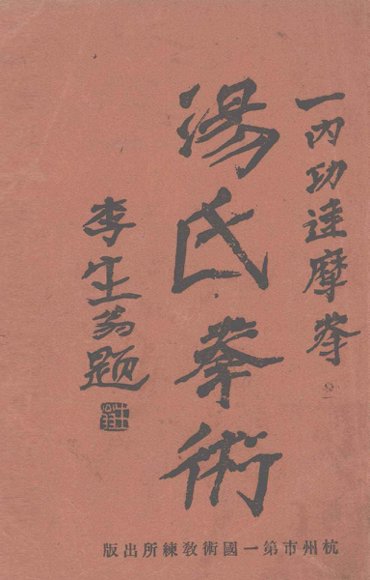 一內功達摩拳
湯氏拳術
李生翁題
杭州市第一國術教練所出版